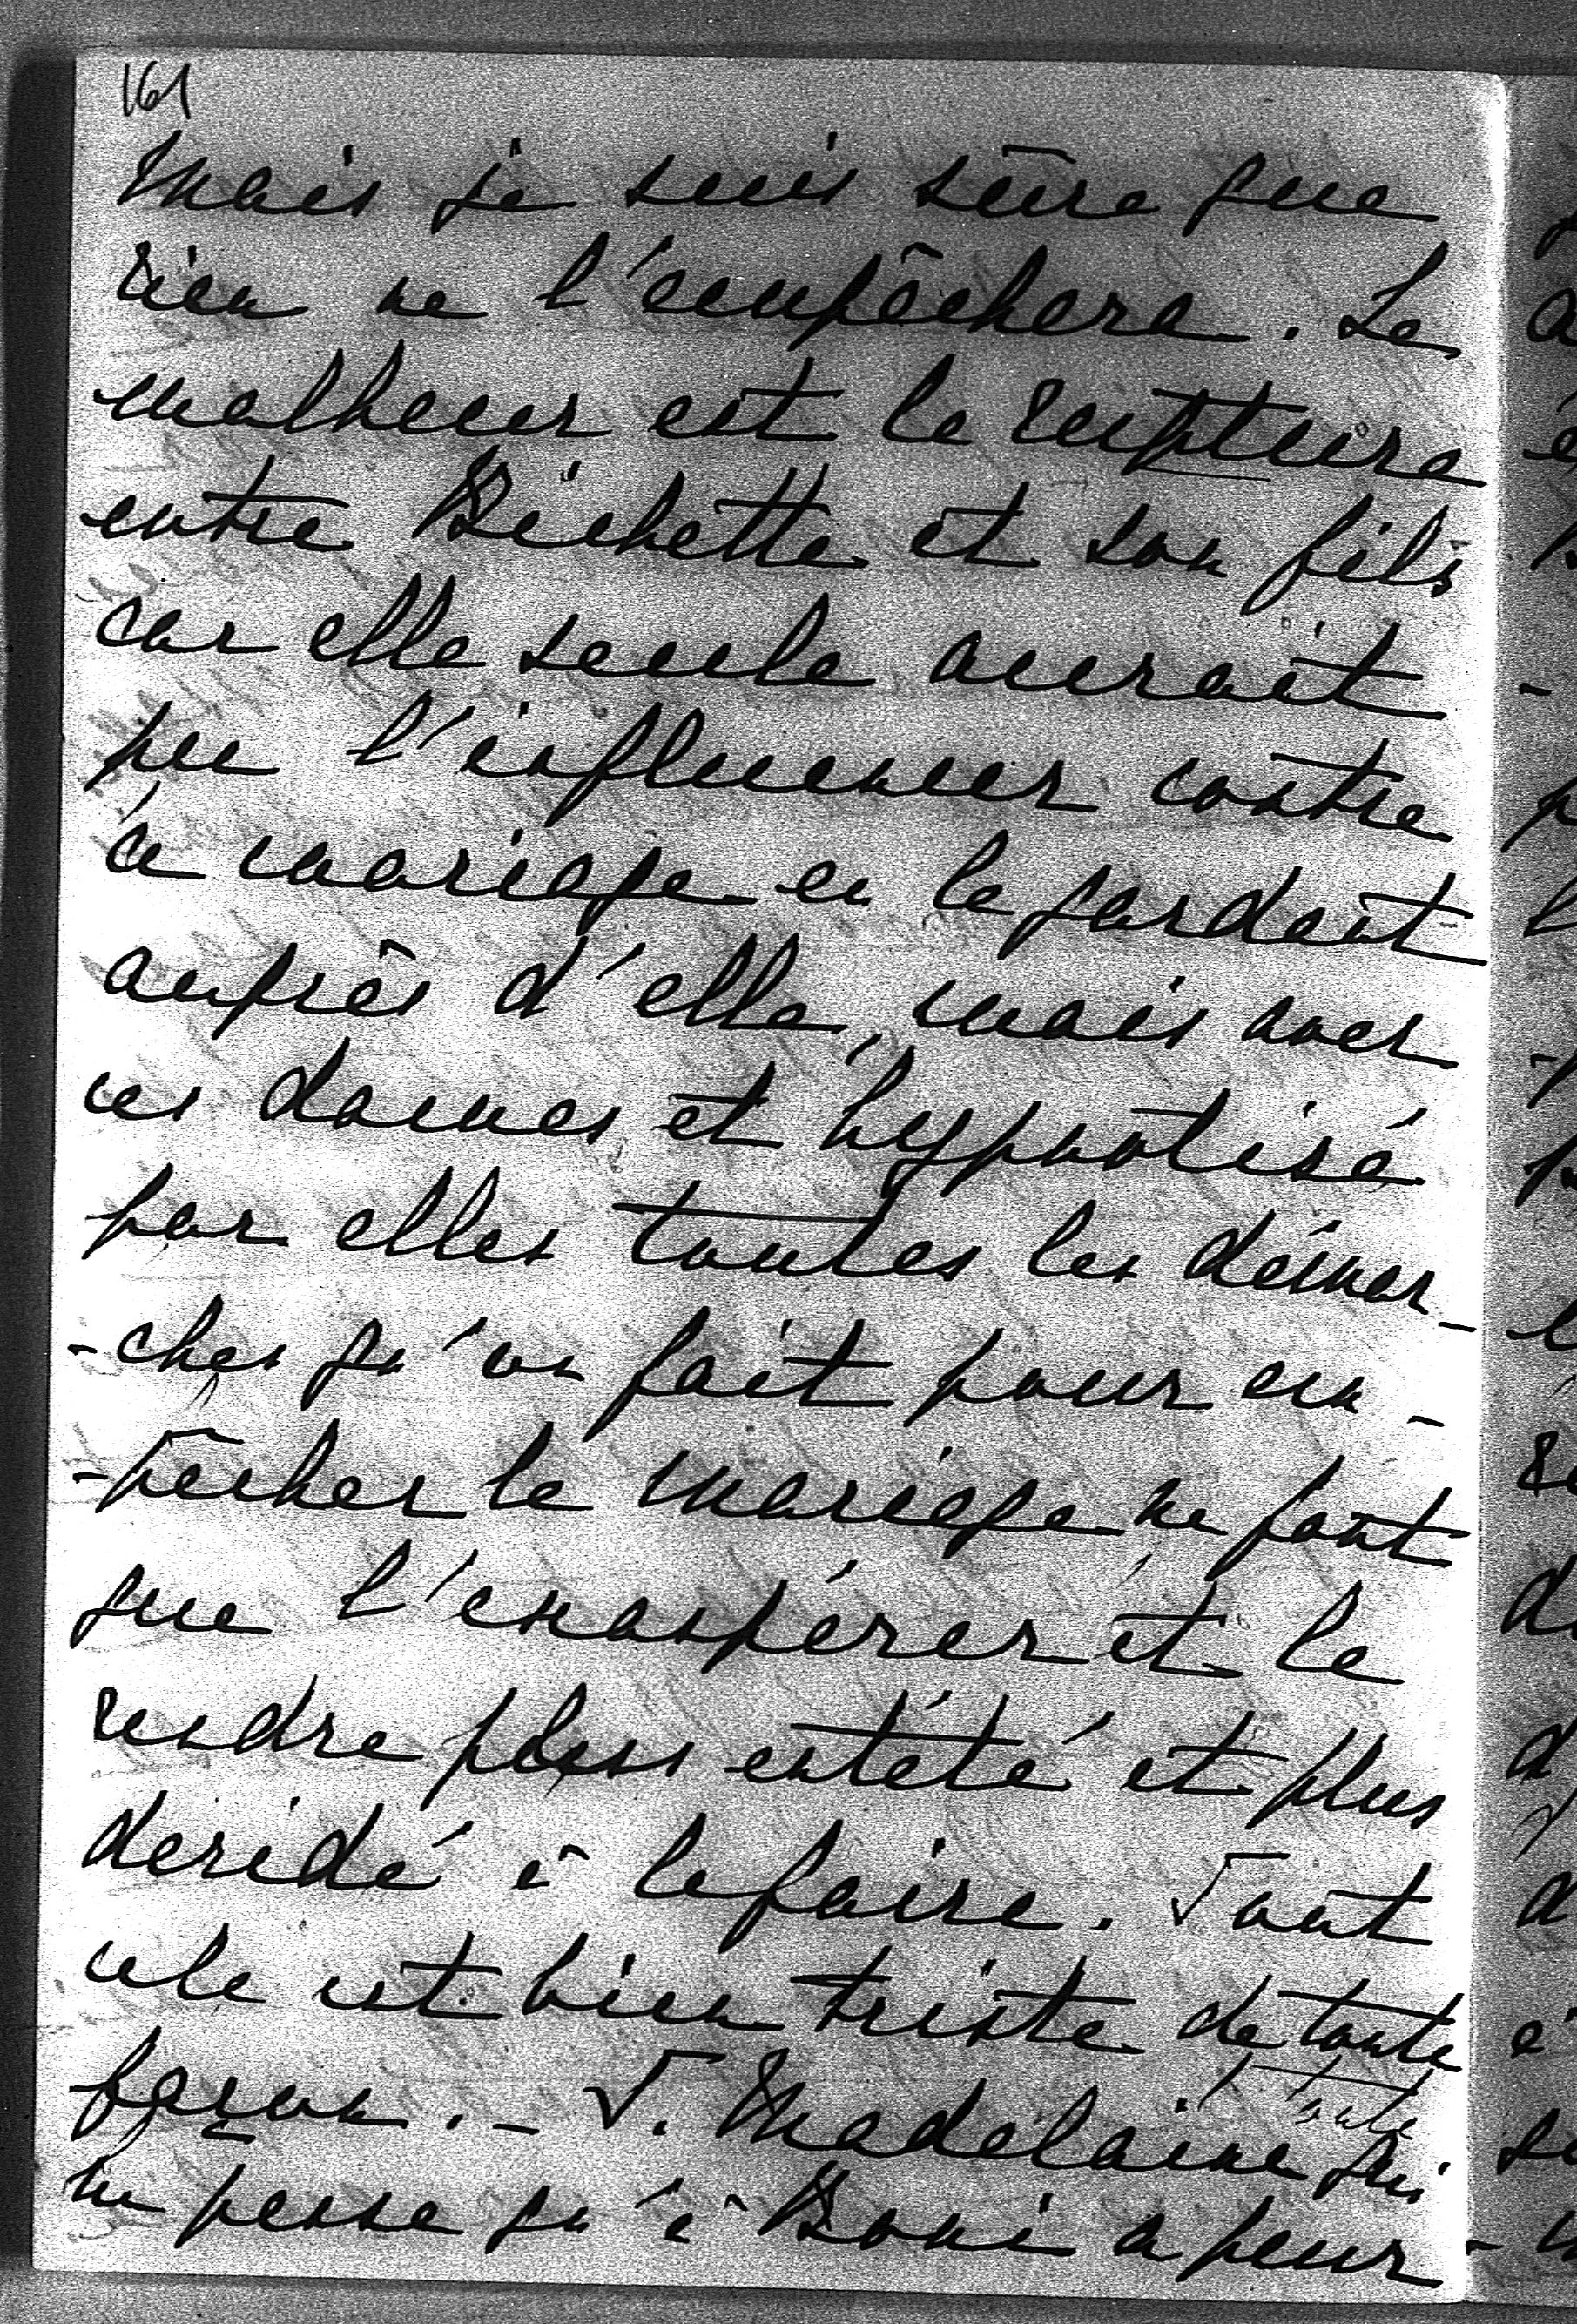 161
Mais je suis sûre que
rien ne l'empêchera. Le
malheur est la rupture
entre Bichette et son fils
car elle seule aurait
pu l'influencer contre
ce mariage en le gardant
auprès d'elle, mais avec
ces dames et hypnotisé
par elles toutes les démar-
-ches qu'on fait pour em-
-pêcher le mariage ne font
que l'exaspérer et le
rendre plus entêté et plus
décidé à le faire. Tout
cela est bien triste de toute
façon. - T. Madelaine qui
ne pense qu'à Boni a peur